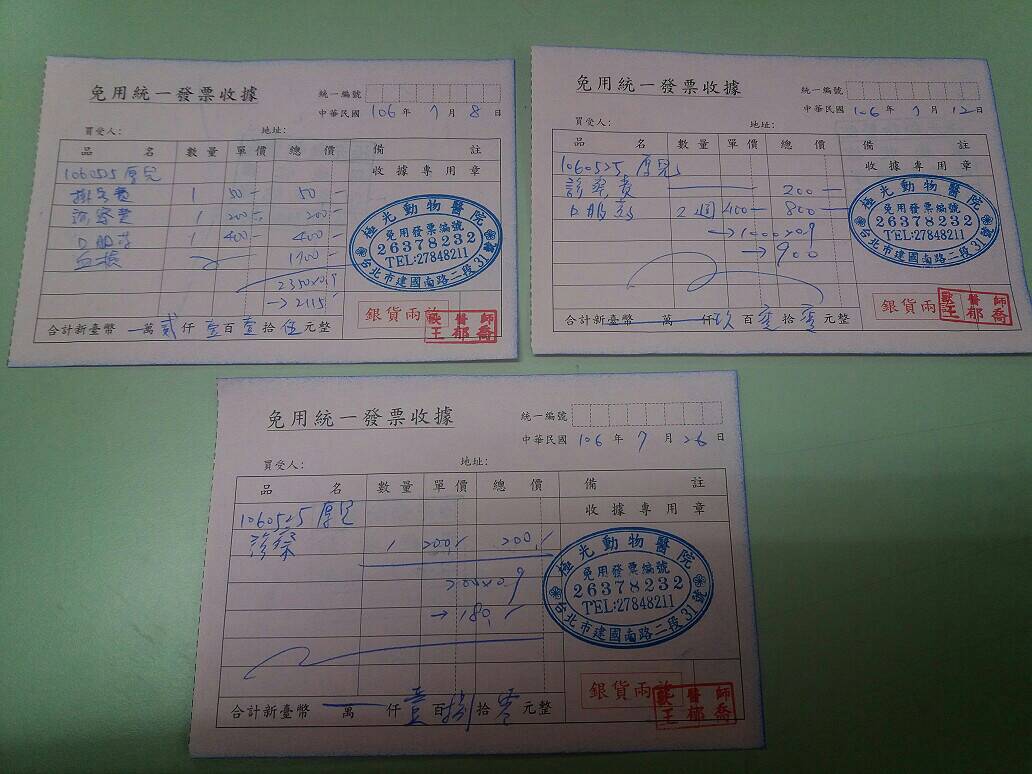 免用統一發票收據
統一編號
中華民國 106 年 7 月 8 日
買受人： 地址：
品 名 數量 單價 總 價 備 註
1060525 厚兒 收據專用章
掛號費 1 50 50
診察費 1 200 200
口服藥 1 400 400
血檢 1700
2350×0.9
→ 2115
極光動物醫院
免用發票編號
26378232
TEL:27848211
台北市建國南路二段31號
銀貨兩訖
獸醫師
王郁喬
合計新臺幣 萬 貳 仟 壹 百 壹 拾 伍 元整
免用統一發票收據
統一編號
中華民國 106 年 7 月 12 日
買受人： 地址：
品 名 數量 單價 總 價 備 註
1060525 厚兒 收據專用章
診察費 200
口服藥 2週 400 800
→ 1000×0.9
→ 900
極光動物醫院
免用發票編號
26378232
TEL:27848211
台北市建國南路二段31號
銀貨兩訖
獸醫師
王郁喬
合計新臺幣 萬 仟 玖 百 零 拾 零 元整
免用統一發票收據
統一編號
中華民國 106 年 7 月 26 日
買受人： 地址：
品 名 數量 單價 總 價 備 註
1060525 厚兒 收據專用章
診察 1 200 200
200×0.9
→ 180
極光動物醫院
免用發票編號
26378232
TEL:27848211
台北市建國南路二段31號
銀貨兩訖
獸醫師
王郁喬
合計新臺幣 萬 仟 壹 百 捌 拾 零 元整